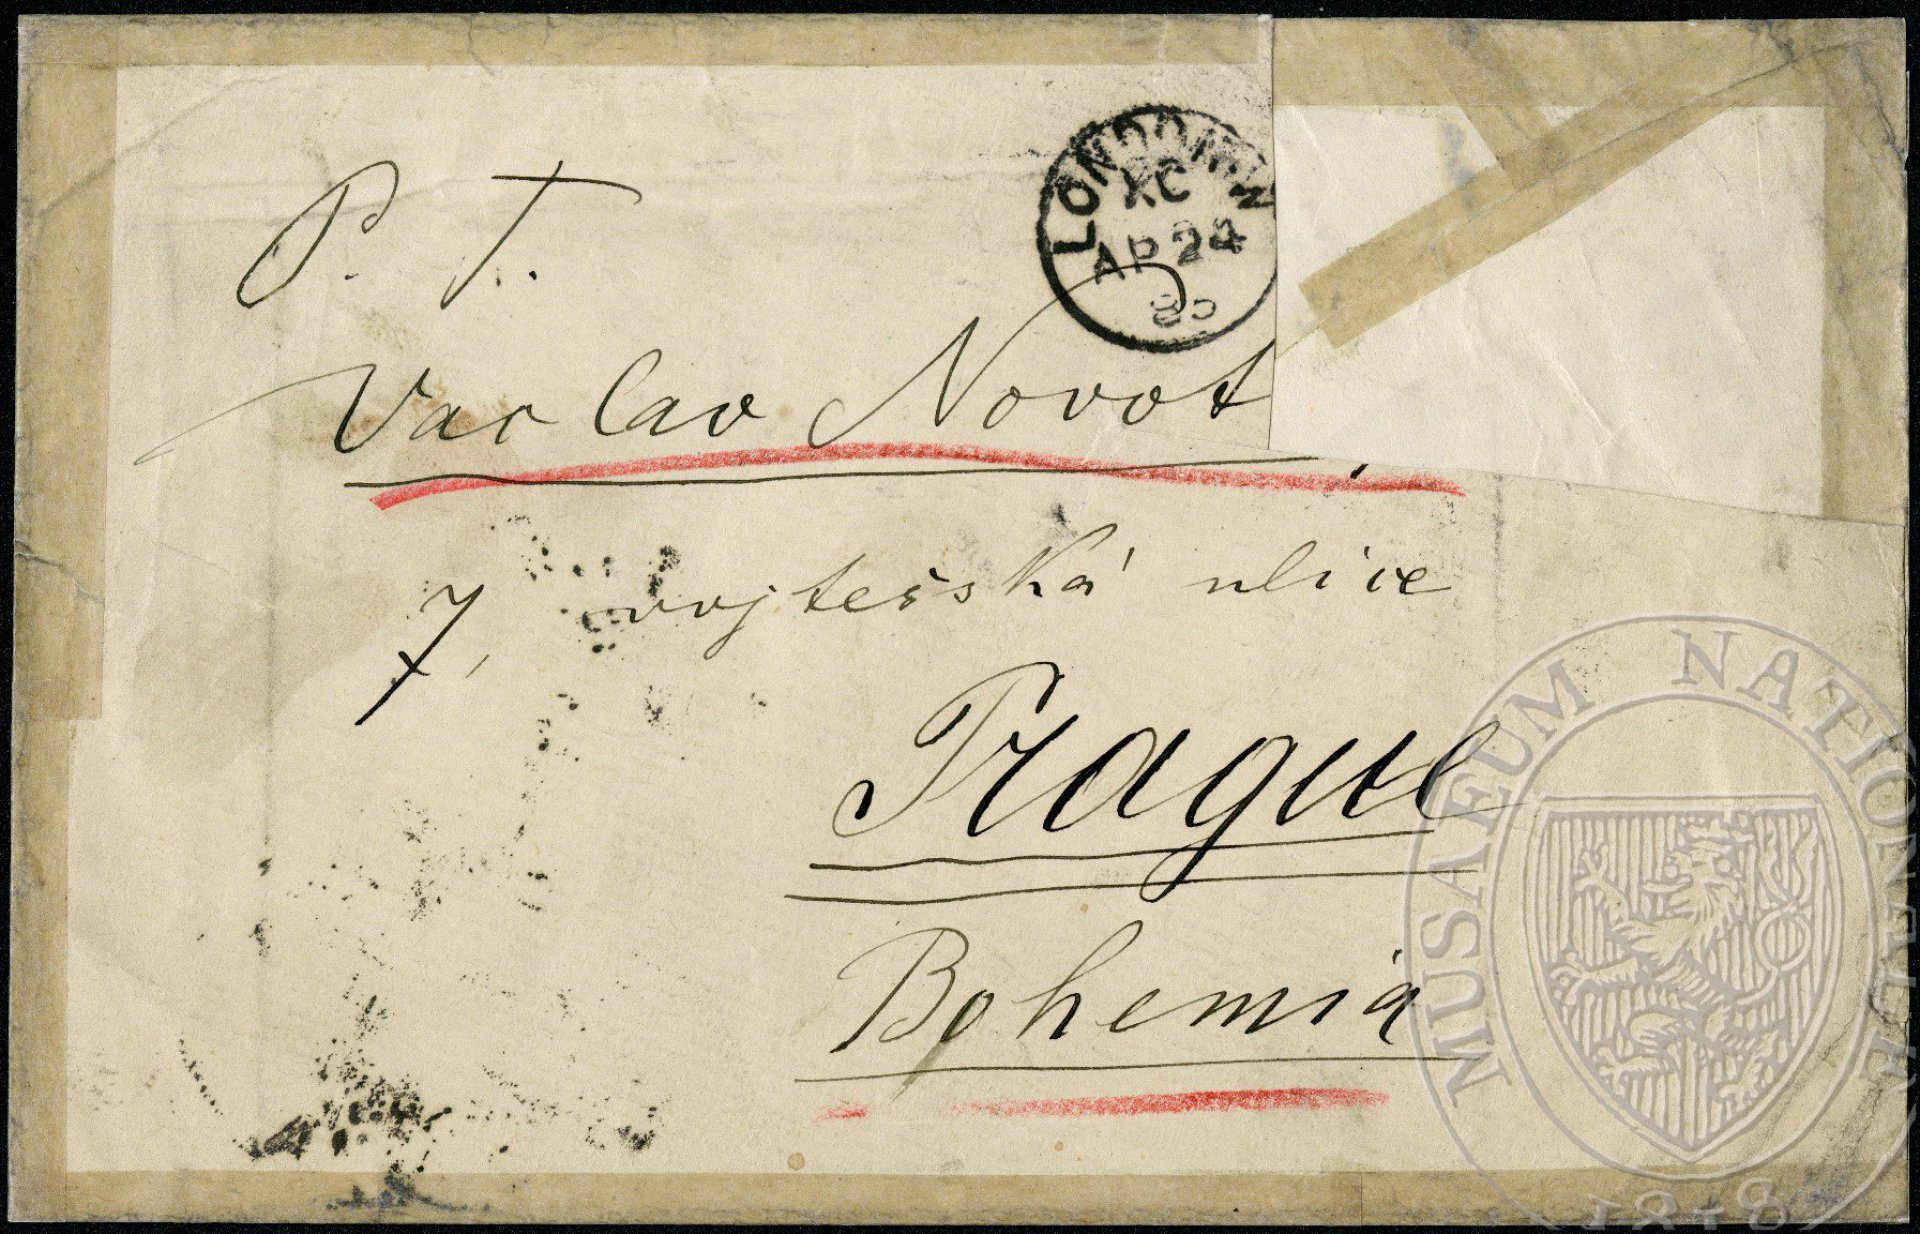 P. T.
LONDON N
KC
AP 24
85
Vaclav Novot
7, vojtešská ulice
Prague
Bohemia
MUSAEUM NATIONALE
1818